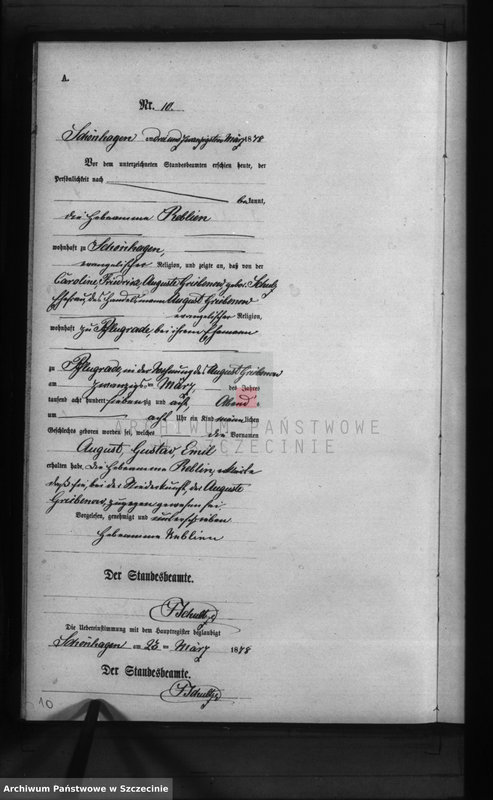 A.
Nr. 10.
Schönhagen am drei und zwanzigsten März 1878
Vor dem unterzeichneten Standesbeamten erschien heute, der
Persönlichkeit nach
bekannt,
die Hebeamme Reblien
wohnhaft zu Schönhagen,
evangelischer Religion, und zeigte an, daß von der
Caroline, Auguste Greibenow, gebor.
Ehefrau, des Handelsmann August Greibenow
evangelischer Religion,
wohnhaft zu Pflugrade, bei ihrem Ehemann
zu Pflugrade, in der Wohnung des August Greibenow
am zwanzigsten März, des Jahres
tausend acht hundert siebenzig und acht, Abend
um acht Uhr ein Kind männlichen
Geschlechts geboren worden sei, welches die Vornamen
August, Gustav, Emil
erhalten habe. Die Hebeamme Reblien,
daß sie, bei der Niederkunft, der Auguste
Greibenow, zugegen gewesen sei.
Vorgelesen, genehmigt und unterschrieben
Hebeamme Reblien
Der Standesbeamte.
Schultz
Die Uebereinstimmung mit dem Hauptregister beglaubigt
Schönhagen am 23 ten März 1878
Der Standesbeamte.
Schultz
10
ARCHIWUM PAŃSTWOWE
W SZCZECINIE
Archiwum Państwowe w Szczecinie